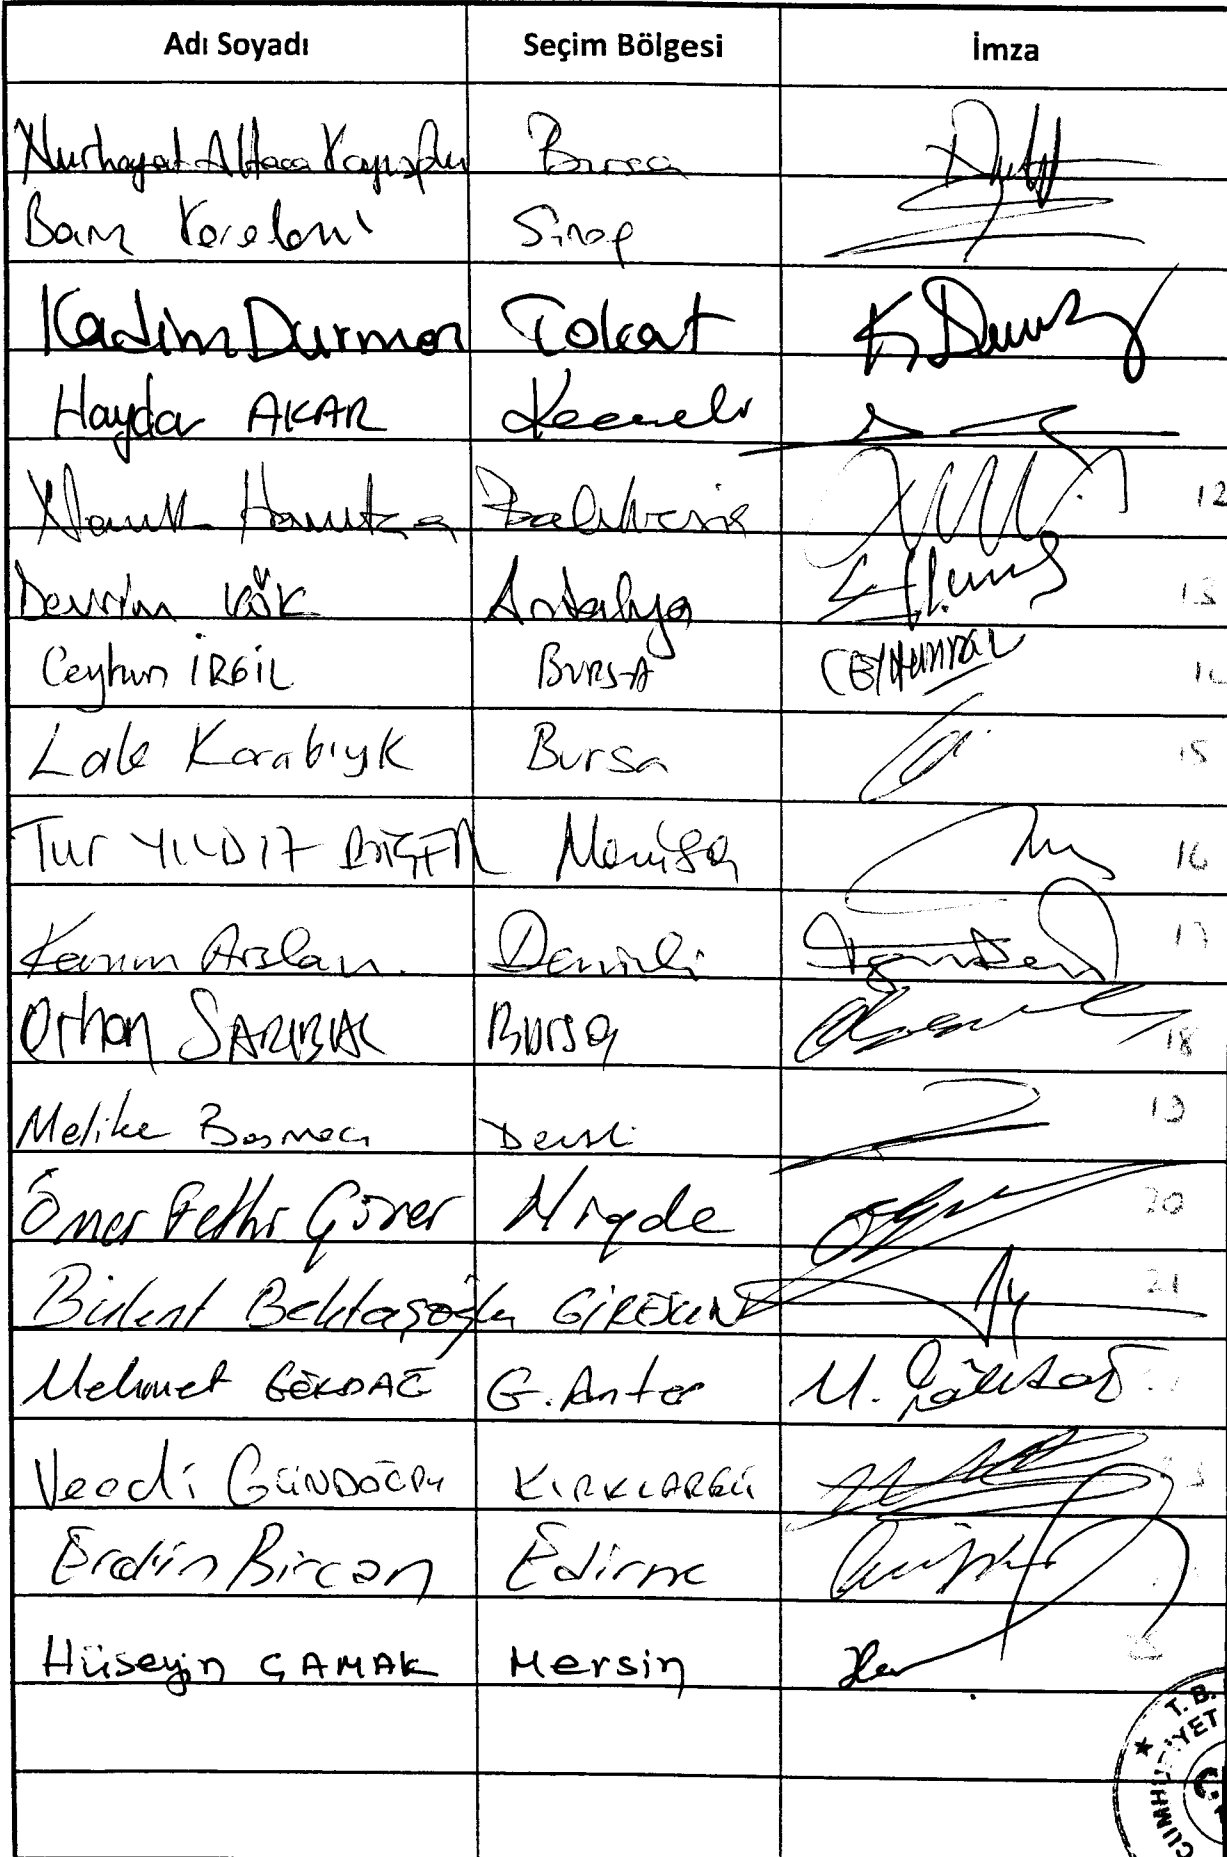 Adı Soyadı Seçim Bölgesi İmza
Nurhayat Altaca Kayışoğlu Bursa
Barış Karadeniz Sinop
Kadim Durmaz Tokat K Durmaz
Haydar AKAR Kocaeli
Namık Havutça Balıkesir 12
Devrim KÖK Antalya 13
Ceyhun İRGİL BURSA CEYHUN İRGİL 14
Lale Karabıyık Bursa 15
Tur YILDIZ BİÇER Manisa 16
Kazım Arslan. Denizli 17
Orhan SARIBAL Bursa 18
Melike Basmacı Denizli 19
Ömer Fethi Gürer Niğde 20
Bülent Bektaşoğlu GİRESUN 21
Mehmet GÖKDAĞ G.Antep M. Gökdağ
Vecdi GÜNDOĞDU KIRKLARELİ
Erdin Bircan Edirne
Hüseyin ÇAMAK Mersin 25
T. B.
CUMHURİYET